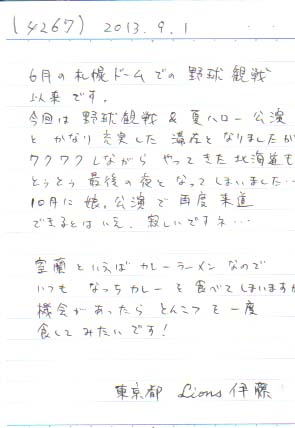 (4267) 2013.9.1
6月の札幌ドームでの野球観戦
以来です。
今回は野球観戦&夏ハロー公演
とかなり充実した滞在となりましたが
ワクワクしながらやってきた北海道も
とうとう最後の夜となってしまいました…
10月に娘。公演で再度来道
できるとはいえ、寂しいですネ…
室蘭といえばカレーラーメンなので
いつもなっちカレーを食べてしまいますが
機会があったらとんこつを一度
食してみたいです!
東京都 Lions 伊藤